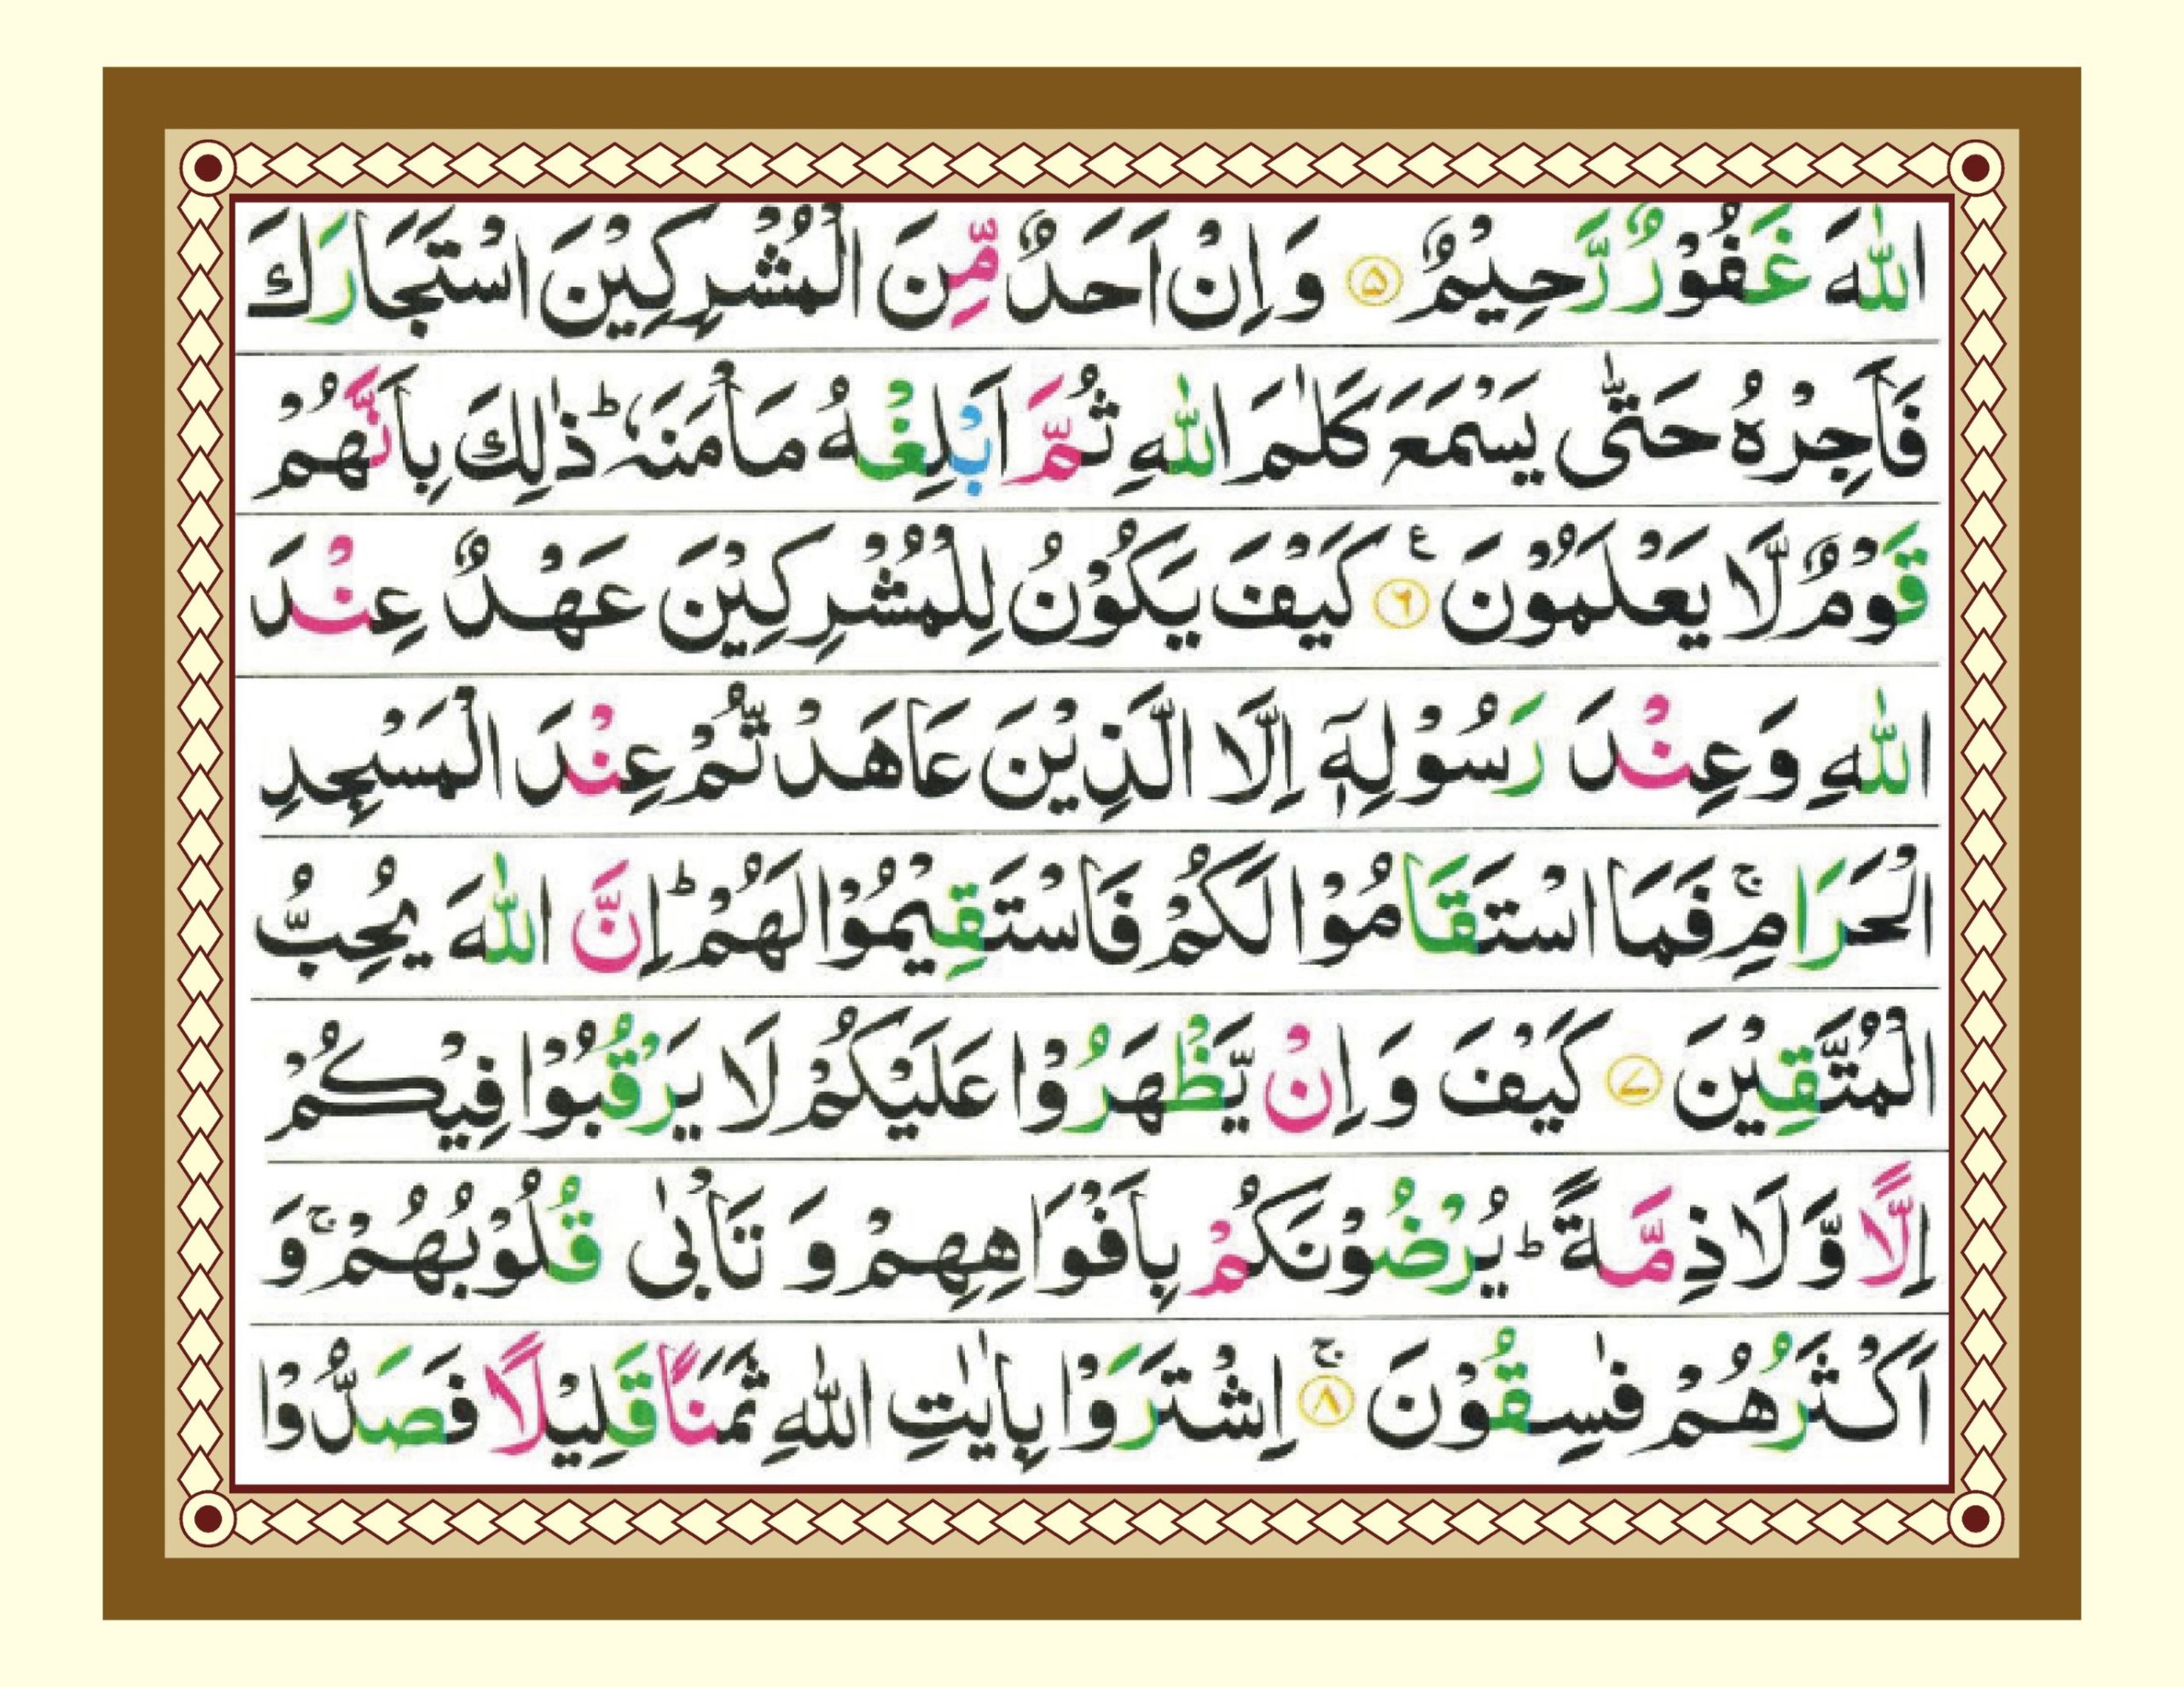 اللّٰهَ غَفُوْرٌ رَّحِيْمٌ ۵ وَ اِنْ اَحَدٌ مِّنَ الْمُشْرِكِيْنَ اسْتَجَارَكَ
فَاَجِرْهُ حَتّٰى يَسْمَعَ كَلٰمَ اللّٰهِ ثُمَّ اَبْلِغْهُ مَاْمَنَهٗ ؕ ذٰلِكَ بِاَنَّهُمْ
قَوْمٌ لَّا يَعْلَمُوْنَ ۶ ع كَيْفَ يَكُوْنُ لِلْمُشْرِكِيْنَ عَهْدٌ عِنْدَ
اللّٰهِ وَ عِنْدَ رَسُوْلِهٖۤ اِلَّا الَّذِيْنَ عَاهَدْتُّمْ عِنْدَ الْمَسْجِدِ
الْحَرَامِ ۚ فَمَا اسْتَقَامُوْا لَكُمْ فَاسْتَقِيْمُوْا لَهُمْ ؕ اِنَّ اللّٰهَ يُحِبُّ
الْمُتَّقِيْنَ ۷ كَيْفَ وَ اِنْ يَّظْهَرُوْا عَلَيْكُمْ لَا يَرْقُبُوْا فِيْكُمْ
اِلًّا وَّ لَا ذِمَّةً ؕ يُرْضُوْنَكُمْ بِاَفْوَاهِهِمْ وَ تَاْبٰى قُلُوْبُهُمْ ۚ وَ
اَكْثَرُهُمْ فٰسِقُوْنَ ۸ ۚ اِشْتَرَوْا بِاٰيٰتِ اللّٰهِ ثَمَنًا قَلِيْلًا فَصَدُّوْا